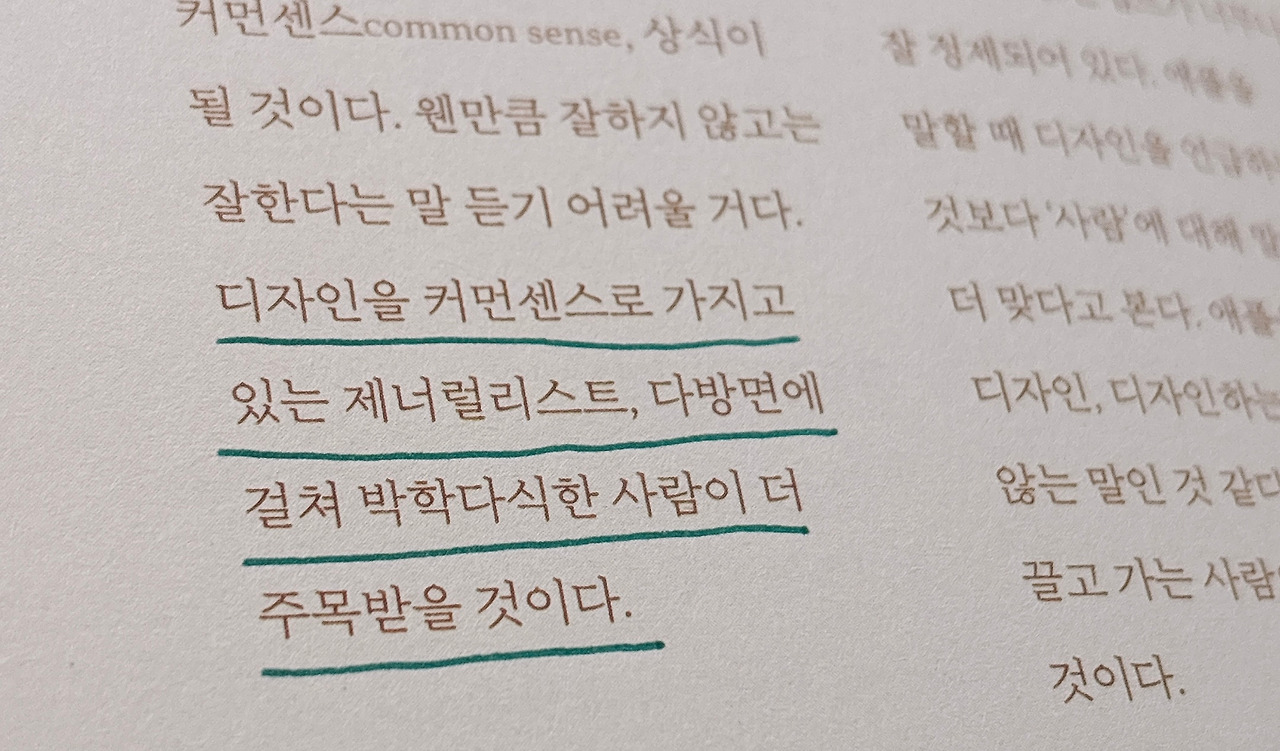 커먼센스common sense, 상식이
될 것이다. 웬만큼 잘하지 않고는
잘한다는 말 듣기 어려울 거다.
디자인을 커먼센스로 가지고
있는 제너럴리스트, 다방면에
걸쳐 박학다식한 사람이 더
주목받을 것이다.
잘 정제되어 있다. 애플을
말할 때 디자인을 언급하는
것보다 '사람'에 대해 말
더 맞다고 본다. 애플
디자인, 디자인하는
않는 말인 것 같다
끌고 가는 사람
것이다.